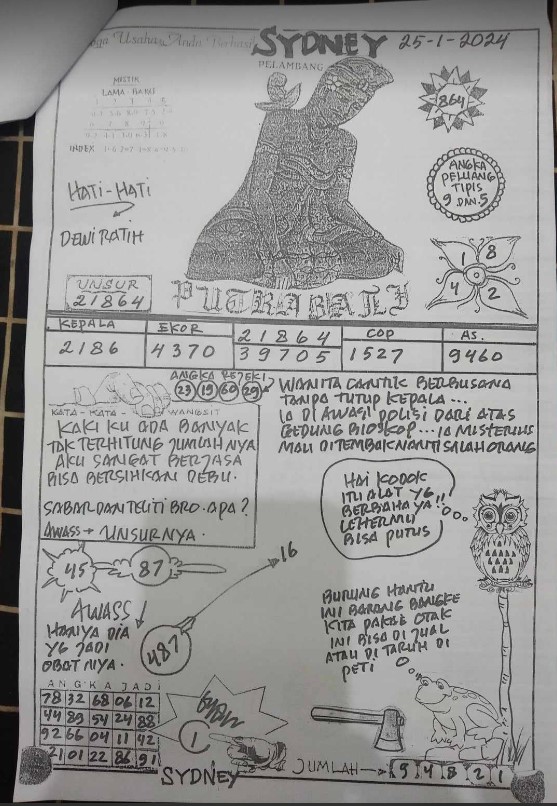 Usaha Anda Berhasil
SYDNEY 25-1-2024
PELAMBANG
MISTIK
LAMA - BARU
INDEX
864
ANGKA
PELUANG
TIPIS
9 DAN 5
HATI-HATI
DEWI RATIH
1 8
4 2
UNSUR
21864
PUTRA BALI
KEPALA EKOR 21864 COP AS.
2186 4370 39705 1527 9460
ANGKA REJEKI
23 19 60 29
KATA - KATA - WANGSIT
KAKI KU ADA BANYAK
TAK TERHITUNG JUMLAH NYA
AKU SANGAT BERJASA
BISA BERSIHKAN DEBU.
SABAR DAN TELITI BRO. APA?
AWASS → UNSURNYA.
WANITA CANTIK BERBUSANA
TANPA TUTUP KEPALA...
IA DI AWASI POLISI DARI ATAS
GEDUNG BIOSKOP... IA MISTERIUS
MAU DITEMBAK NANTI SALAH ORANG
HAI KODOK
ITU ALAT YG
BERBAHAYA!!
LEHERMU
BISA PUTUS
45 87
16
487
AWASS
HANYA DIA
YG JADI
OBAT NYA.
BURUNG HANTU
INI BARANG BANGKE
KITA PAKAE OTAK
INI BISA DI JUAL
ATAU DI TARUH DI
PETI
ANGKA JADI
78 32 68 06 12
44 89 54 24 88
92 66 04 11 42
21 01 22 86 91
1
SYDNEY
JUMLAH → 9 4 8 2 1